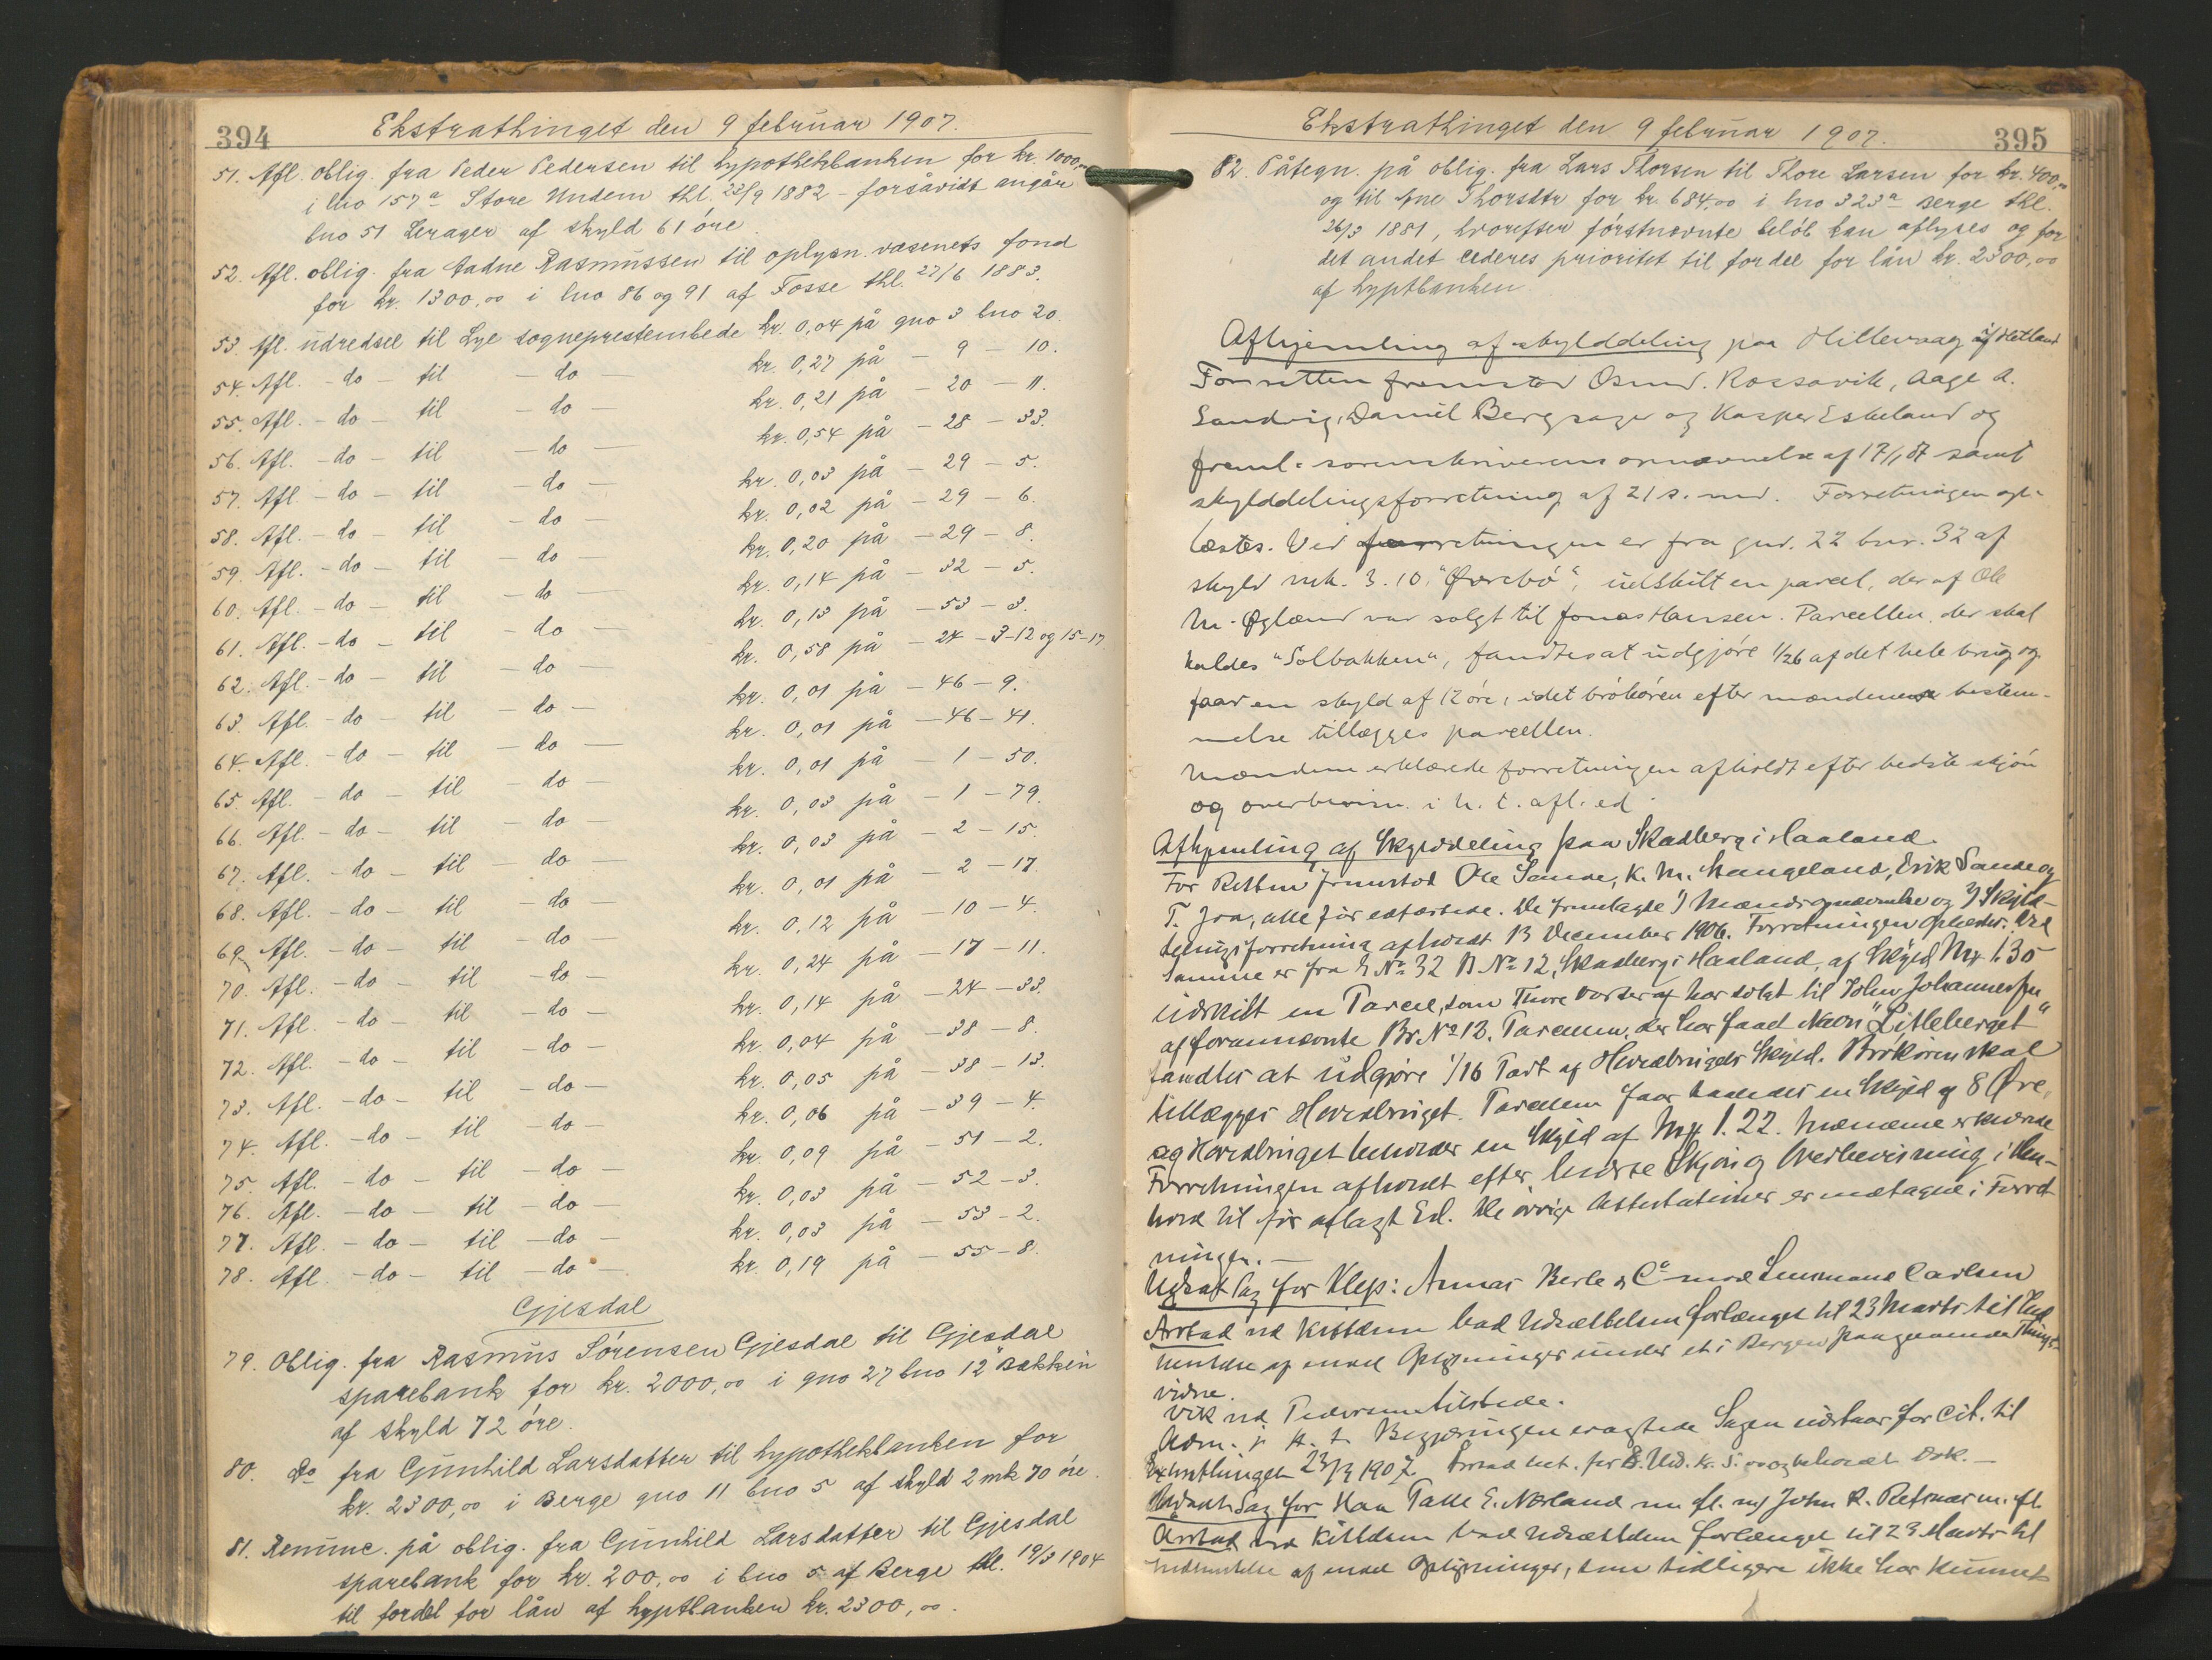 394
Ekstrathinget den 9 februar 1907.
51. Afl. oblig. fra Peder Pedersen til hypothekbanken for kr. 1000,00
i lno 157ª Store Undem thl. 23/9 1882 – forsåvidt angår
bno 51 Lerager af skyld 61 öre.
52. Afl. oblig. fra Aadne Rasmussen til oplysn. væsenets fond
for kr. 1300,00 i lno 86 og 91 af Fosse thl. 27/6 1883.
53. Afl. udredsel til Lye sogneprestembede kr. 0,04 på gno 3 bno 20.
54. Afl. – do – til – do – kr. 0,27 på – 9 – 10.
55. Afl. – do – til – do – kr. 0,21 på – 20 – 11.
56. Afl. – do – til – do – kr. 0,54 på – 28 – 33.
57. Afl. – do – til – do – kr. 0,03 på – 29 – 5.
58. Afl. – do – til – do – kr. 0,02 på – 29 – 6.
59. Afl. – do – til do – kr. 0,20 på – 29 – 8.
60. Afl. – do – til – do – kr. 0,14 på – 32 – 5.
61. Afl. – do – til – do – kr. 0,13 på – 53 – 3.
62. Afl. – do – til – do – kr. 0,58 på – 24 – 3-12 og 15-17
63. Afl. – do – til – do – kr. 0,01 på – 46 – 9.
64. Afl. – do – til – do – kr. 0,01 på – 46 – 41.
65. Afl. – do – til – do – kr. 0,01 på – 1 – 50.
66. Afl. – do – til – do – kr. 0,03 på – 1 – 79.
67. Afl. – do – til – do – kr. 0,03 på – 2 – 15.
68. Afl. – do – til – do – kr. 0,01 på – 2 – 17.
69. Afl. – do – til – do – kr. 0,12 på – 10 – 4.
70. Afl. – do – til – do – kr. 0,24 på – 17 – 11.
71. Afl. – do – til – do – kr. 0,14 på – 24 – 33.
72. Afl. – do – til – do – kr. 0,04 på – 38 – 8.
73. Afl. – do – til – do – kr. 0,05 på – 38 – 13.
74. Afl. – do – til – do – kr. 0,06 på – 39 – 4.
75. Afl. – do – til – do – kr. 0,09 på – 51 – 2.
76. Afl. – do – til – do – kr. 0,03 på – 52 – 3.
77. Afl. – do – til – do – kr. 0,03 på – 53 – 2.
78. Afl. – do – til – do – kr. 0,19 på – 55 – 8.
Gjesdal
79. Oblig. fra Rasmus Sörensen Gjesdal til Gjesdal
sparebank for kr. 2000,00 i gno 27 bno 12 "Bakken
af skyld 72 öre.
80. Do fra Gunhild Larsdatter til hypothekbanken for
kr. 2300,00 i Berge gno 11 bno 5 af skyld 2 mk 70 öre.
81. Renunc. på oblig. fra Gunhild Larsdatter til Gjesdal
sparebank for kr. 200,00 i bno 5 af Berge thl. 19/3 1904
til fordel for lån af hyptbanken kr. 2300,00.
Ekstrathinget den 9 februar 1907.
395
82. Påtegn. på oblig. fra Lars Thorsen til Thore Larsen for kr. 400,00
og til Ane Thorsdtr for kr. 684,00 i lno 323ª Berge thl.
26/3 1881, hvorefter förstnævnte belöb kan aflyses og for
det andet cederes prioritet til fordel for lån kr. 2300,00
af hyptbanken.
Afhjemling af skylddeling paa Hillevaag i Hetland
For retten fremstod Osmd. Rossavik, Aage A.
Sandvig, Daniel Bergsage og Kasper Eskeland og
freml. sorenskriverens opnævnelse af 17/1 07 samt
skylddelingsforretning af 21 s. md. Forretningen op-
læstes. Ved forretningen er fra gnr. 22 bnr. 32 af
skyld mk. 3.10, "Øvrebö", udskilt en parcel, der af Ole
M. Øglænd var solgt til Jonas Hansen. Parcellen, der skal
kaldes "Solbakken", fandtes at udgjöre 1/26 af det hele brug og
faar en skyld af 12 öre, idet brökören efter mændenes bestem-
melse tillægges parcellen.
Mændene erklærede forretningen afholdt efter bedste skjön
og overbevisn. i h. t. afl. ed.
Afhjemling af Skylddeling paa Skadberg i Haaland.
For Retten fremstod Ole Sande, K. M. Mangeland, Erik Sande og
T. Joa, alle för edfæstede. De fremlagde 1) Mændsopnævnelse og 2) Skyld-
delingsforretning afholdt 13 December 1906. Forretningen oplæstes. Ved
Samme er fra G. No 32 B No 12, Skadberg i Haaland, af Skyld Mk 1.30
udskilt en Parcel, som Thore har solgt til John Johannessen
af forannævnte Br. No 12. Parcellen, der har faaet Navn "Litleberget"
fandtes at udgjöre 1/16 Part af Hovedbrugets Skyld. Brökören skal
tillægges Hovedbruget. Parcellen faar saaledes en Skyld af 8 Øre,
og Hovedbruget beholder en Skyld af Mk 1.22. Mændene erklærede
Forretningen afholdt efter bedste Skjön og Overbevisning i Hen-
hold til för aflagt Ed. De övrige Attestationer er medtagne i Forret-
ningen. –
Udsat Sag for Klep: Annas Berle & Co mod Lensmand Carlsen
Aarstad ved Kitteldsen bad Udsættelsen forlænget til 23 Marts til Ind-
hentelse af endel Oplysninger under et i Bergen paagaaende Things-
vidne.
Vik ved Pedersen tilstede.
Adm. i H. t. Begjæringen eragtede Sagen udstaar for cit. til
Extrathinget 23/3 1907.
Udsat Sag for Haa Talle E. Nærland m. fl. m/ John R. m. fl.
Aarstad ved Kitteldsen bad Udsættelsen forlænget til 23 Marts til
Indhentelse af endel Oplysninger, som tidligere ikke har kunnet